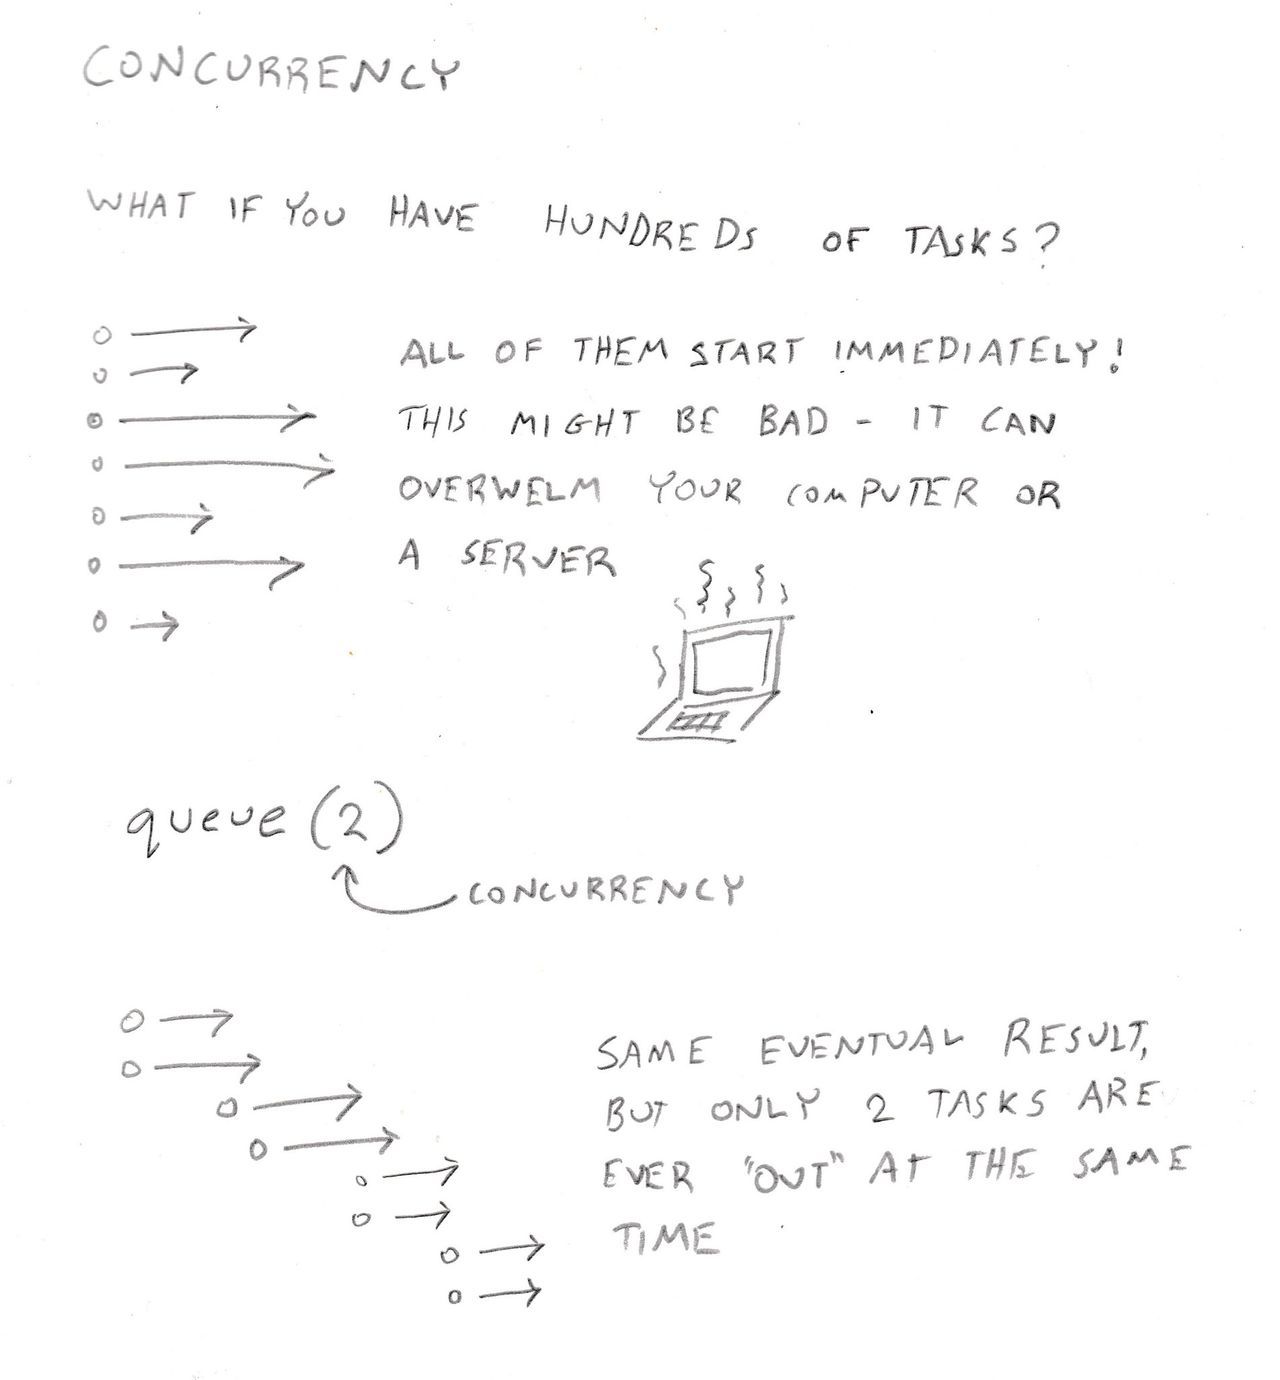 CONCURRENCY
WHAT IF YOU HAVE HUNDREDS OF TASKS?
ALL OF THEM START IMMEDIATELY!
THIS MIGHT BE BAD - IT CAN
OVERWELM YOUR COMPUTER OR
A SERVER
queue (2)
CONCURRENCY
SAME EVENTUAL RESULT,
BUT ONLY 2 TASKS ARE
EVER "OUT" AT THE SAME
TIME